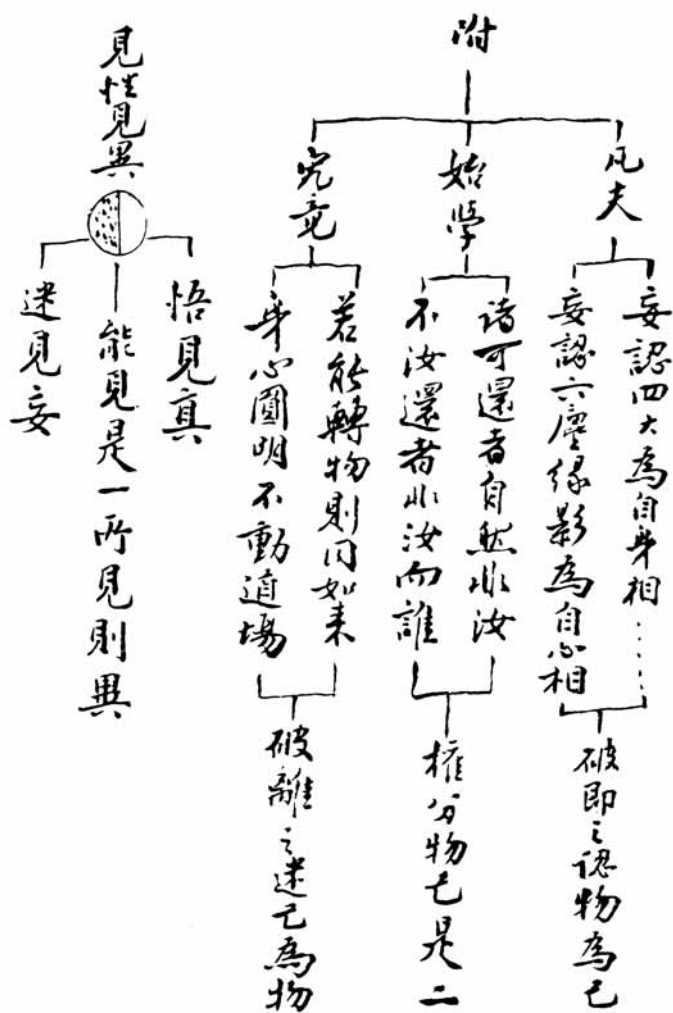 附
凡夫
妄認四大為自身相……
妄認六塵緣影為自心相
破即之認物為己
始學
諸可還者自然非汝
不汝還者非汝而誰
權分物己是二
究竟
若能轉物則同如來
身心圓明不動道場
破離之迷己為物
見性見異
悟見真
能見是一所見則異
迷見妄